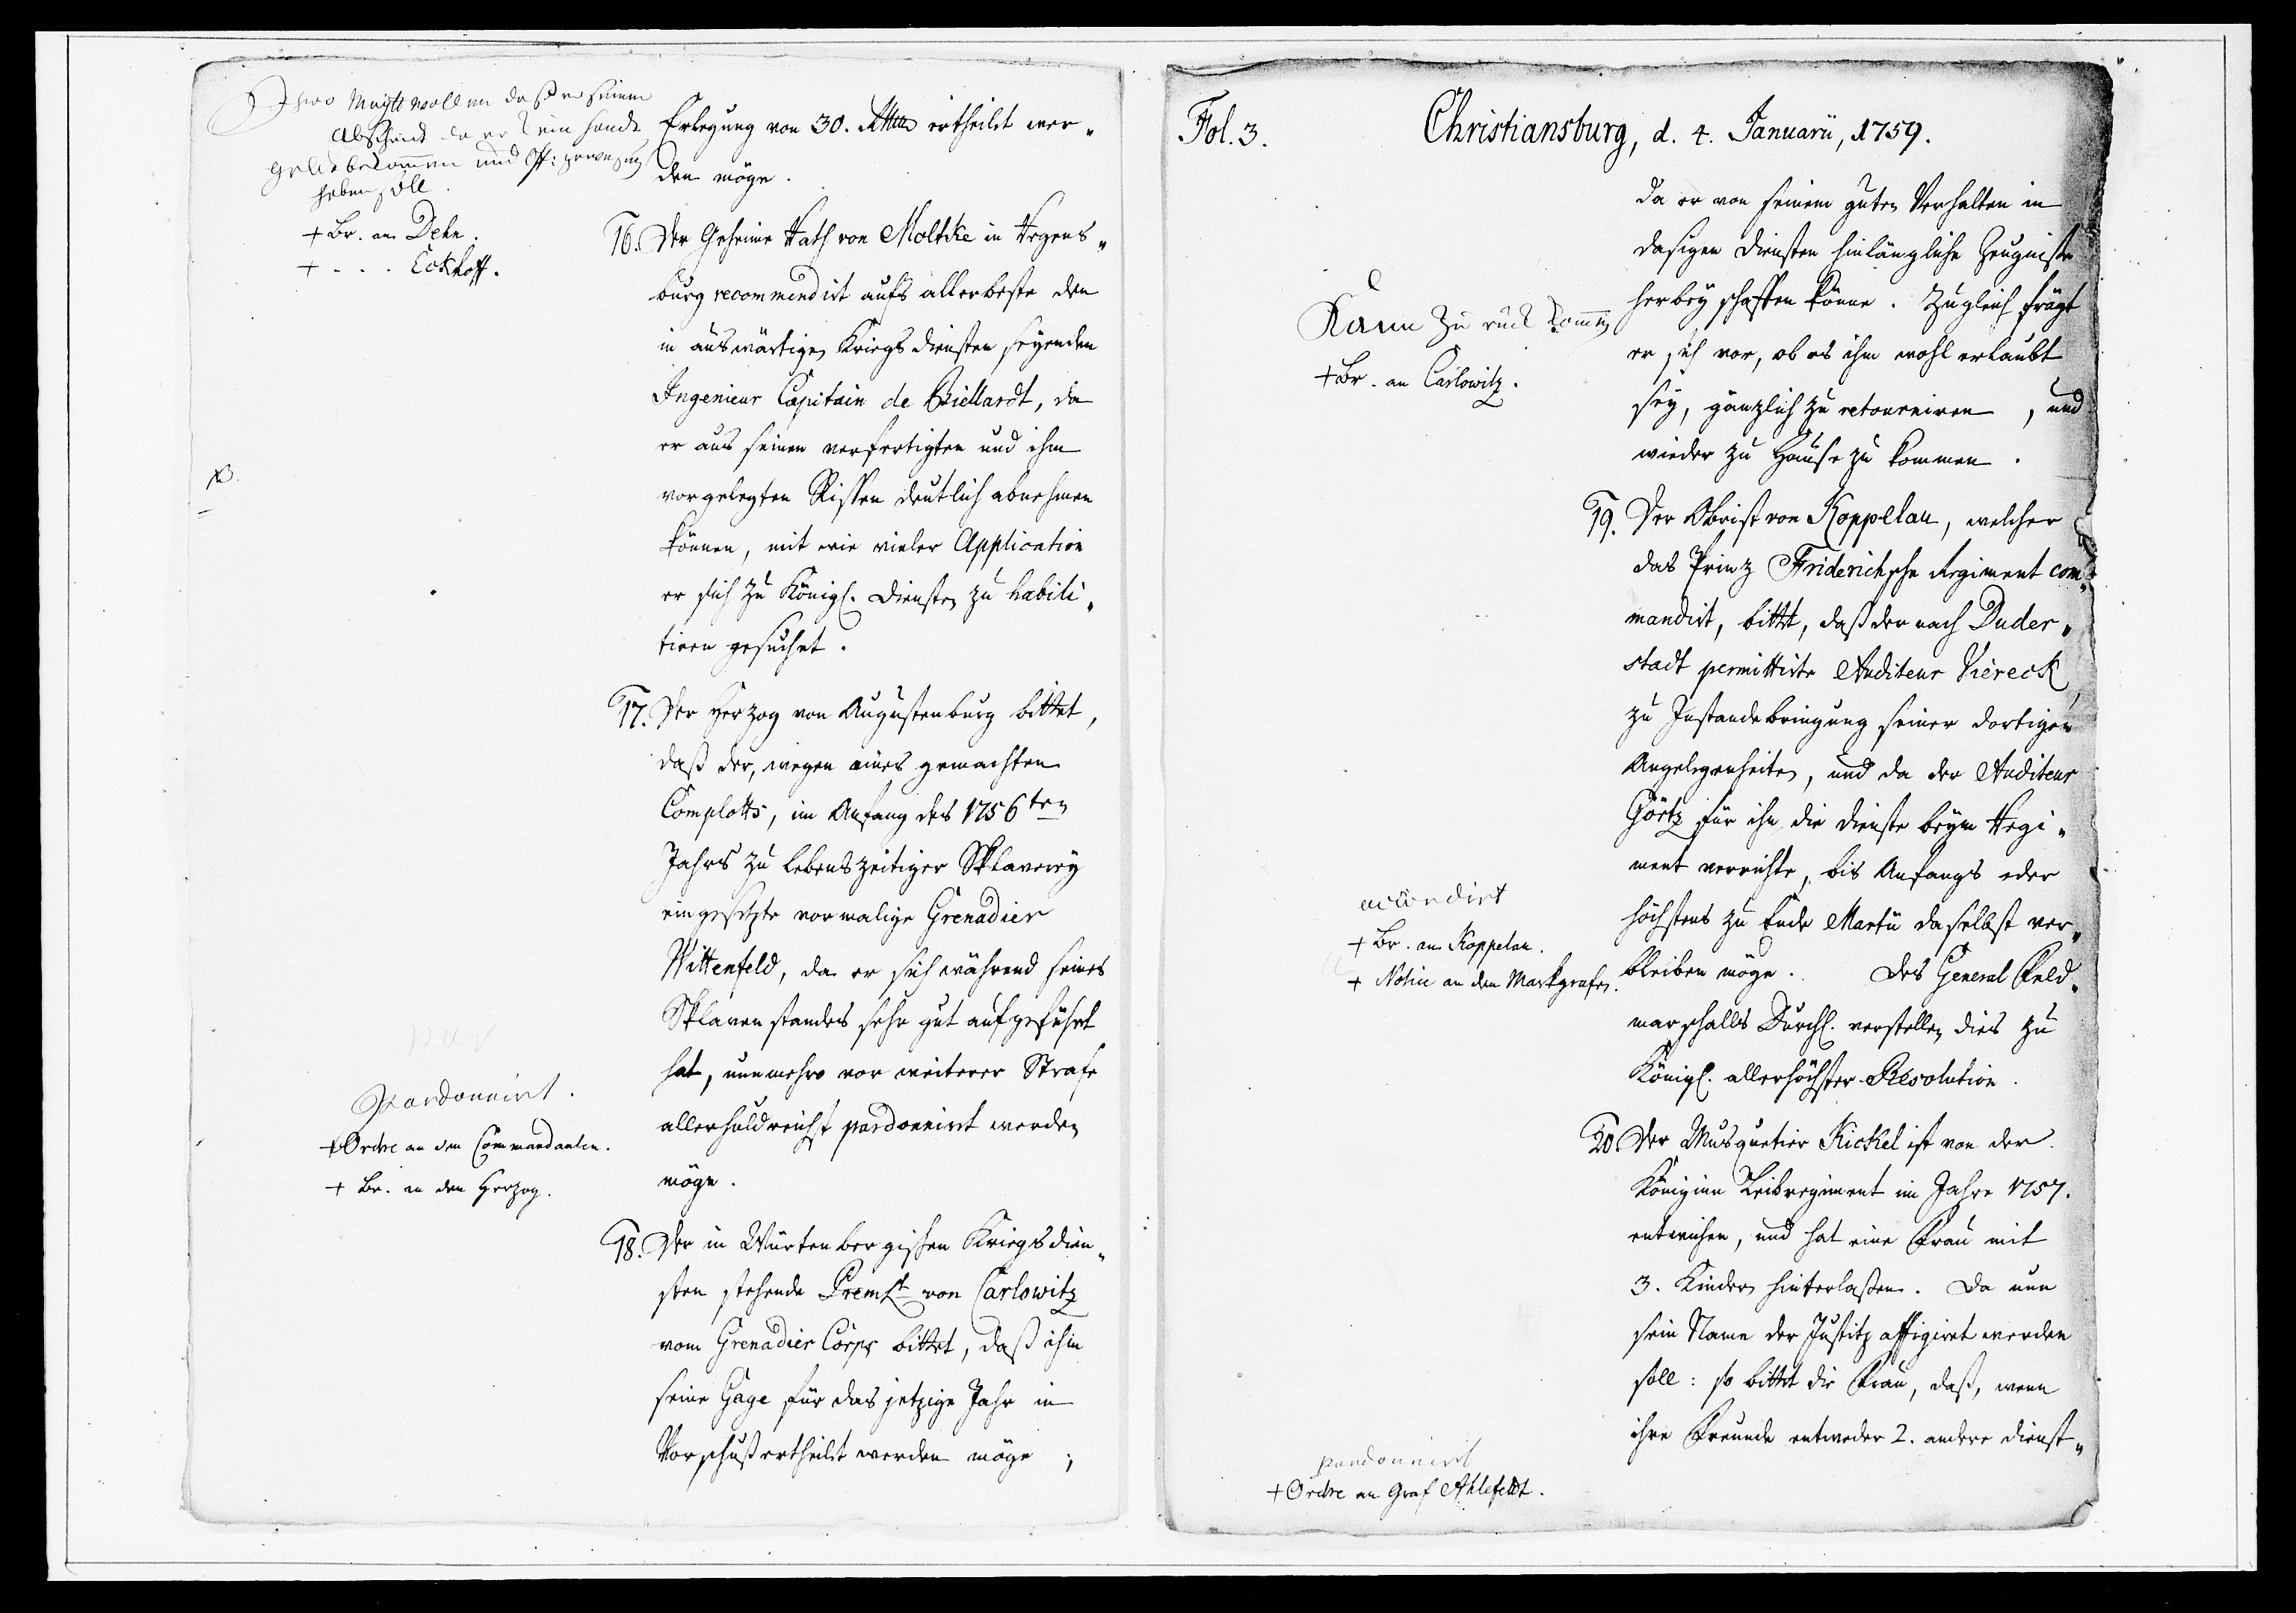 Ihro Maytt wollen daß er seinen
Abscheidt da er kein handt
geldt bekommen und Off: gewesen
haben soll.
+ Br. an Dehn.
+ - - - Eckhoff.
Erlegung von 30. Rthlr ertheilt wer-
den möge.
16. Der Geheime Rath von Moltke in Regens-
burg recommendirt aufs allerbeste den
in auswärtigen Kriegsdiensten seyenden
Ingenieur Capitain de Biellardt, da
er aus seinen verfertigten und ihm
vorgelegten Rissen deutlich abnehmen
können, mit wie vieler Application
er sich zu Königl. Diensten zu habili-
tiren gesuchet.
NB.
17. Der Herzog von Augustenburg bittet,
daß der, wegen eines gemachten
Complotts, im Anfang des 1756ten
Jahrs zu lebenszeitiger Sklaverey
eingesetzte vormalige Grenadier
Wittenfeld, da er sich während seines
Sklavenstandes sehr gut aufgeführt
hat, nunmehro vor weiterer Strafe
allerhuldreichst pardonnirt werden
möge.
pardonnirt.
+ Ordre an den Commandanten.
+ Br. an den Herzog.
18. Der in Würtenbergischen Kriegsdien-
sten stehende Premlt von Carlowitz
vom Grenadier Corps bittet, daß ihm
seine Gage für das jetzige Jahr in
Vorschuß ertheilt werden möge;
Fol. 3.
Christiansburg, d. 4. Januarii, 1759.
da er von seinem guten Verhalten in
dasigen Diensten hinlängliche Zeugniße
herbey schaffen könne. Zugleich frägt
er sich vor, ob es ihm wohl erlaubt
sey, gänzlich zu retourniren, und
wieder zu Hause zu kommen.
Kann zu rück kommen
+ Br. an Carlowitz.
19. Der Obrist von Koppelau, welcher
das Prinz Friderichsche Regiment com-
mandirt, bittet, daß der nach Duder-
stadt permittirte Auditeur Viereck
zu Instandebringung seiner dortigen
Angelegenheiten, und da der Auditeur
Görtz für ihn die Dienste beym Regi-
ment verrichte, bis Anfangs oder
höchstens zu Ende Martii daselbst ver-
bleiben möge. Des General Feld-
marschalls Durchl. verstellen dies zu
Königl. allerhöchster Resolution.
accordirt
+ Br. an Koppelau.
+ Notice an den Markgrafen.
20. Der Musquetier Kickel ist von der
Königinn Leibregiment im Jahre 1757.
entwichen, und hat eine Frau mit
3. Kindern hinterlaßen. Da nun
sein Name der Justitz affigiret werden
soll: so bittet die Frau, daß, wenn
ihre Freunde entweder 2. andere dienst-
pardonnirt
+ Ordre an Graf Ahlefeldt.